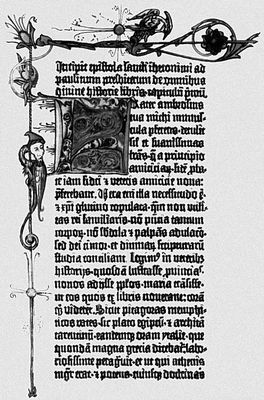 Incipit epistola sancti iheronimi ad
paulinum presbiterum de omnibus
divine historie libris. capitulum primum.
Frater ambrosius
tua michi munus-
cula perferens. detulit
sił et suavissimas
lrās. q̄ a principio
amiciciaȝ. fidē pba-
te iam fidei et veteris amicicie nova:
pferebant. Vera enī illa necessitudo ē.
et xpī glutino copulata. qm̄ non vtili-
tas rei familiaris. nō pn̄tia tantum
corporȝ. nō sbdola et palpās adulacō.
sed dei timor. et divinarum scripturarum
studia conciliant. Legim⁹ in veterib⁹
historijs. quosdā lustrasse puincias.
novos adijsse pplos. maria trāsisse.
ut eos quos ex libris noverant: corā
qȝ viderēt. Sicut pitagoras memphi-
ticos vates. sic plato egiptū. et architā
tarentinū. eandemqȝ oram ytalie. que
quondā magna grecia dicebaȶ: labo-
riosissime peragravit. et ut qui athenis
mgr̄ erat. et potens. cuiusqȝ doctrinas